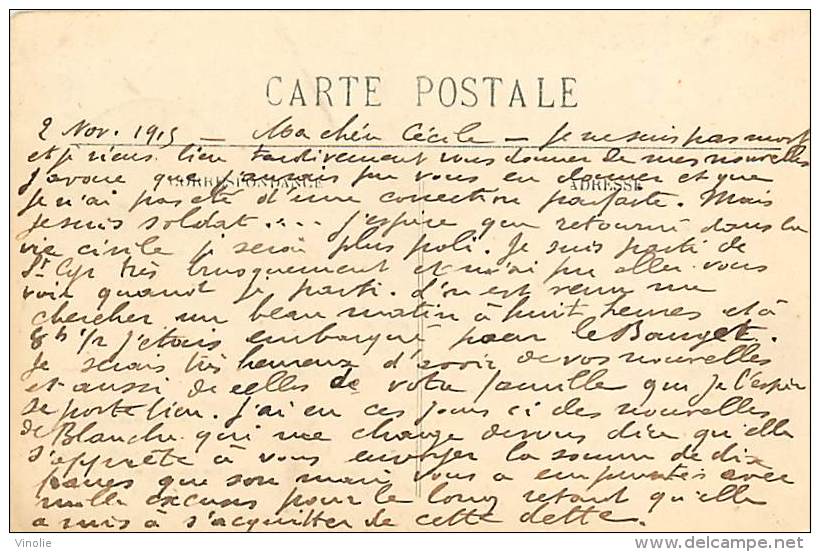 CARTE POSTALE
2 Nov. 1915 — Ma chère Cécile — Je ne suis pas mort
et je viens bien tardivement vous donner de mes nouvelles
CORRESPONDANCE
ADRESSE
j'avoue que j'aurais pu vous en donner et que
je n'ai pas été d'une correction parfaite. Mais
je suis soldat.... j'espère que retourné dans la
vie civile je serai plus poli. Je suis parti de
St Cyr très brusquement et n'ai pu aller vous
voir quand je parti. L'on est venu me
chercher un beau matin à huit heures et à
8h 1/2 j'étais embarqué pour le Bourget.
Je serais très heureux d'avoir de vos nouvelles
et aussi de celles de votre famille qui je l'espère
se porte bien. J'ai eu ces jours ci des nouvelles
de Blanche qui me charge de vous dire qu'elle
s'apprête à vous envoyer la somme de dix
francs que son mari vous a empruntés avec
mille excuses pour le long retard qu'elle
a mis à s'acquitter de cette dette.
Vinolie
www.delcampe.net